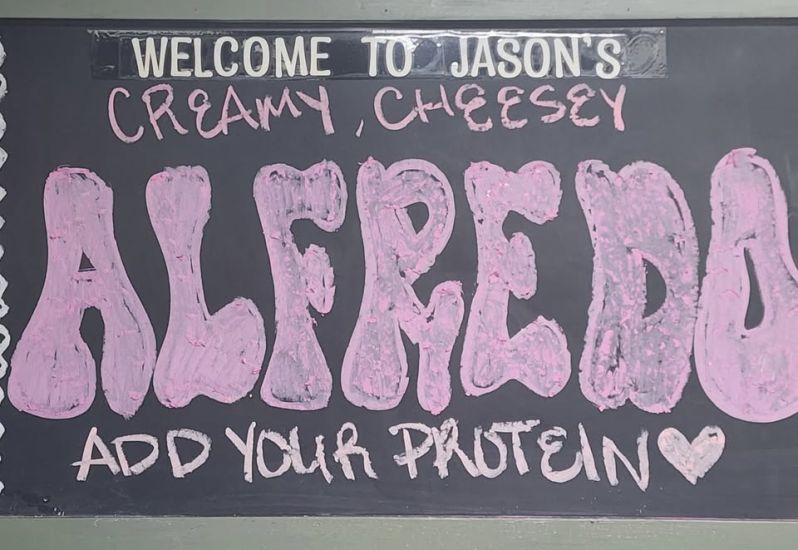 WELCOME TO JASON'S
CREAMY, CHEESEY
ALFREDO
ADD YOUR PROTEIN♡